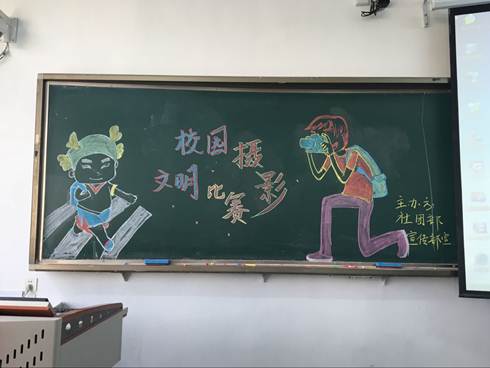 校园摄影
文明比赛
主办方
社团部
宣传部宣